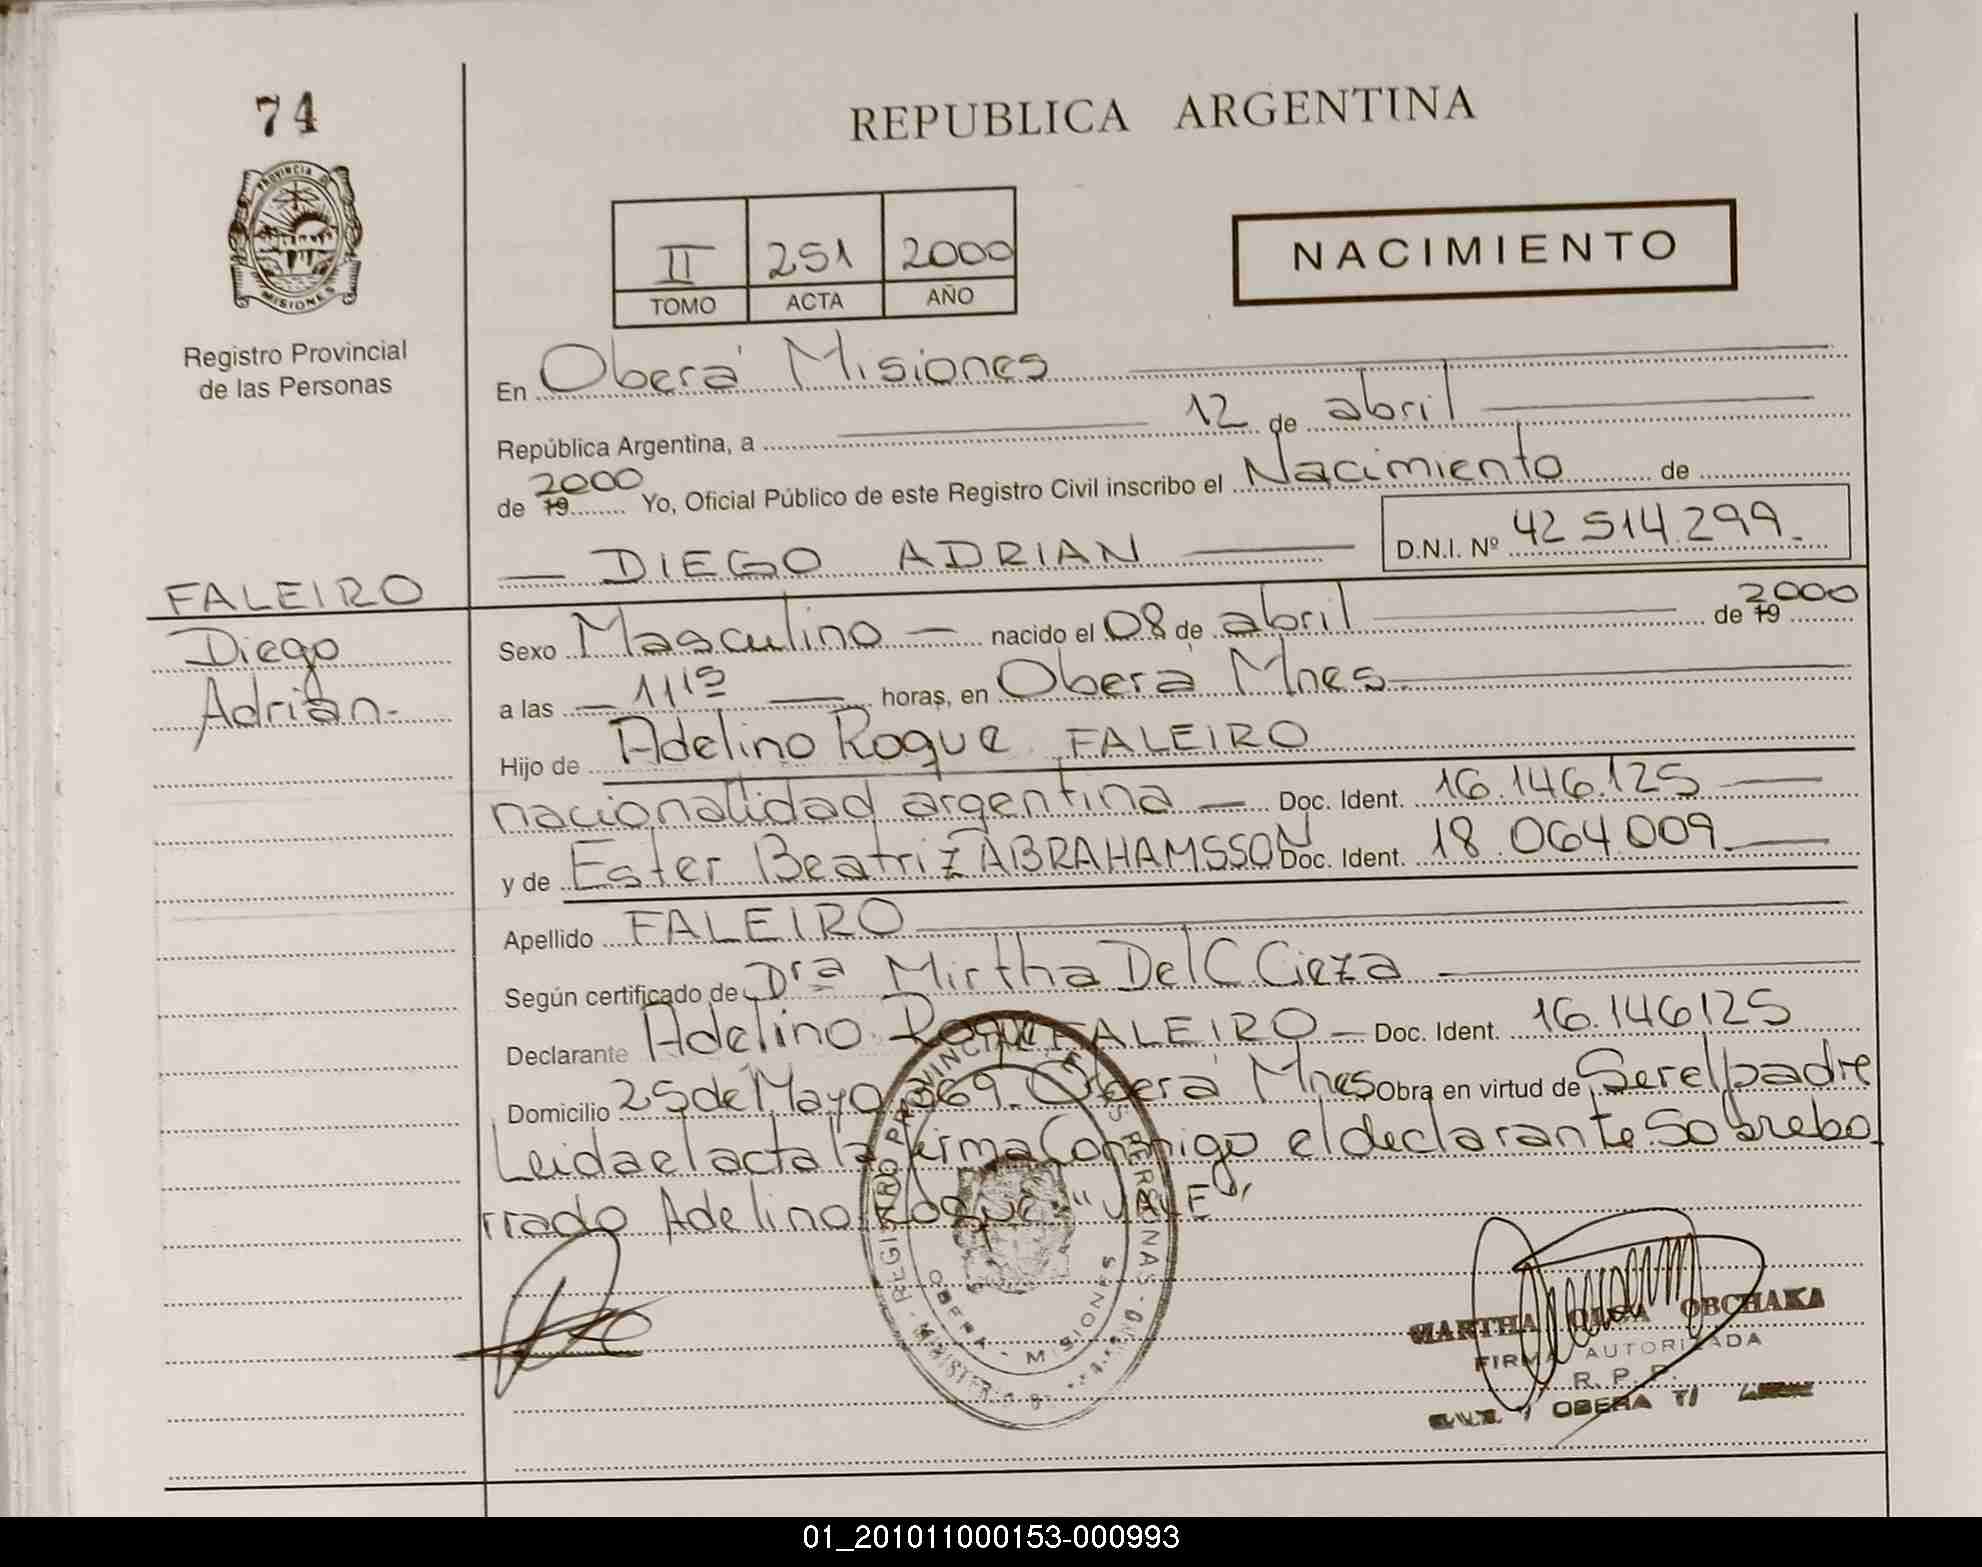 74
REPUBLICA ARGENTINA
PROVINCIA DE
MISIONES
Registro Provincial
de las Personas
II 251 2000
TOMO ACTA AÑO
NACIMIENTO
En Oberá Misiones
República Argentina, a 12 de abril
de 19 2000 Yo, Oficial Público de este Registro Civil inscribo el Nacimiento de
DIEGO ADRIAN D.N.I. Nº 42 514.299.
FALEIRO
Diego
Adrian.-
Sexo Masculino nacido el 08 de abril de 19 2000
a las 11 15 horas, en Oberá Mnes
Hijo de Adelino Roque FALEIRO
nacionalidad argentina Doc. Ident. 16.146.125
y de Ester Beatriz ABRAHAMSSON Doc. Ident. 18.064.009
Apellido FALEIRO
Según certificado de Dra Mirtha Del C Cieza
Declarante Adelino Roque FALEIRO Doc. Ident. 16.146125
Domicilio 25 de Mayo 369. Oberá Mnes Obra en virtud de Ser el padre
Leida el acta la firma Conmigo el declarante. Sobrebo
rrado Adelino Roque "VALE"
REGISTRO PROVINCIAL DE LAS PERSONAS
OBERA - MISIONES
MARTHA OLGA OBCHAKA
FIRMA AUTORIZADA
R. P. P.
OBERA
01_201011000153-000993